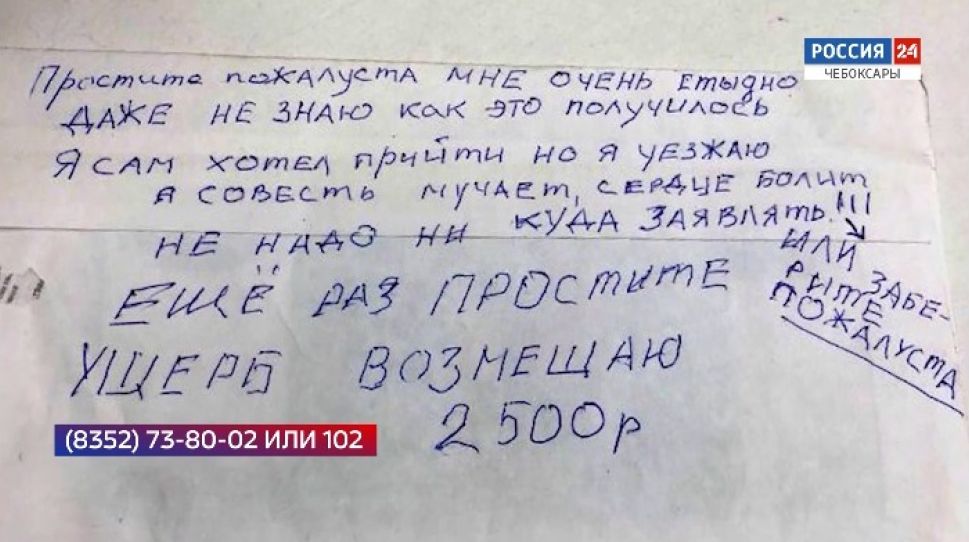 РОССИЯ 24
ЧЕБОКСАРЫ
Простите пожалуста мне очень стыдно
ДАЖЕ НЕ ЗНАЮ КАК ЭТО ПОЛУЧИЛОСЬ
Я САМ ХОТЕЛ ПРИЙТИ НО Я УЕЗЖАЮ
Я СОВЕСТЬ МУЧАЕТ, СЕРДЦЕ БОЛИТ
НЕ НАДО НИ КУДА ЗАЯВЛЯТЬ.!!!
ИЛИ ЗАБЕ-
РИТЕ
ПОЖАЛУСТА
ЕЩЁ РАЗ ПРОСТИТЕ
УЩЕРБ ВОЗМЕЩАЮ
2500р
(8352) 73-80-02 ИЛИ 102